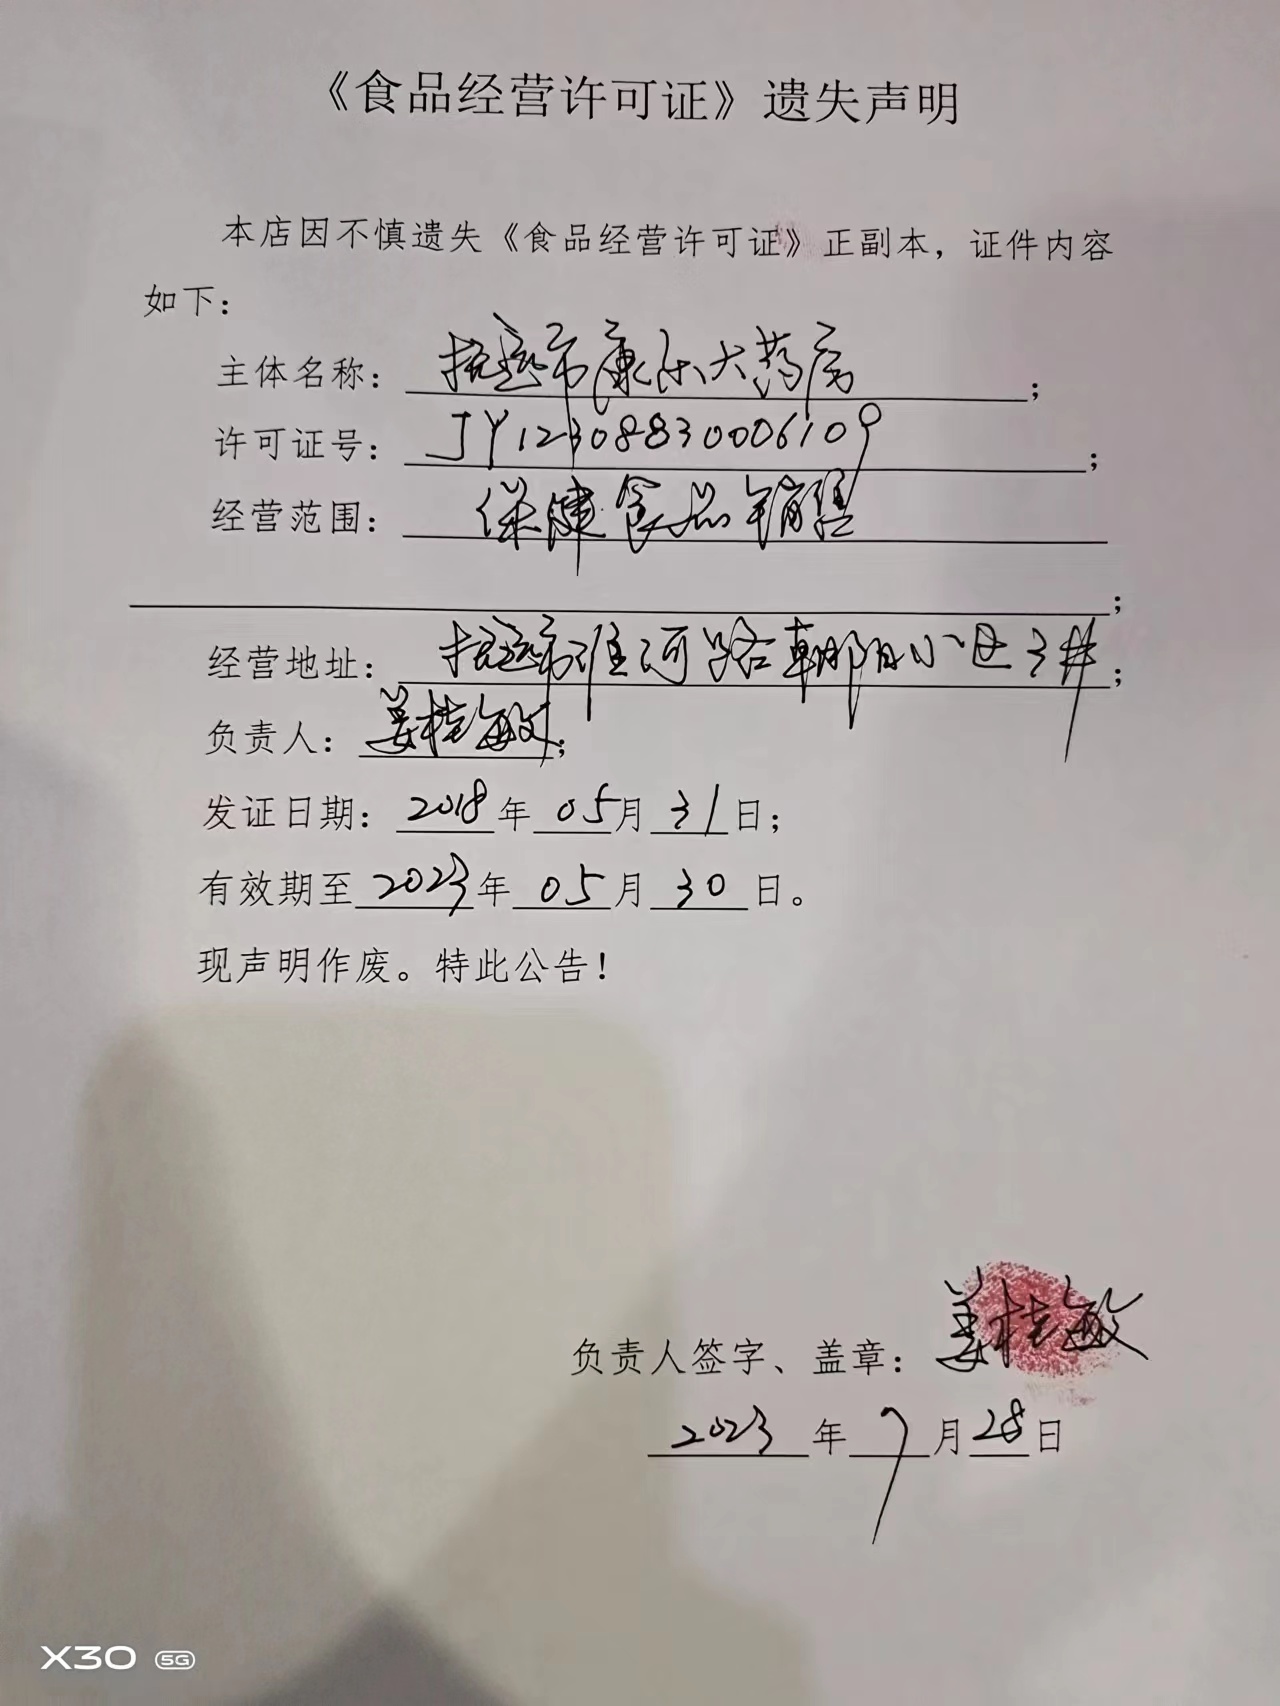 《食品经营许可证》遗失声明
本店因不慎遗失《食品经营许可证》正副本，证件内容
如下：
主体名称：抚远市康乐大药房；
许可证号：JY12308830006109；
经营范围：保健食品销售
；
经营地址：抚远市淮河路朝阳小区3#；
负责人：姜桂敏；
发证日期：2018年05月31日；
有效期至2023年05月30日。
现声明作废。特此公告！
负责人签字、盖章：姜桂敏
2023年7月28日
X30 5G